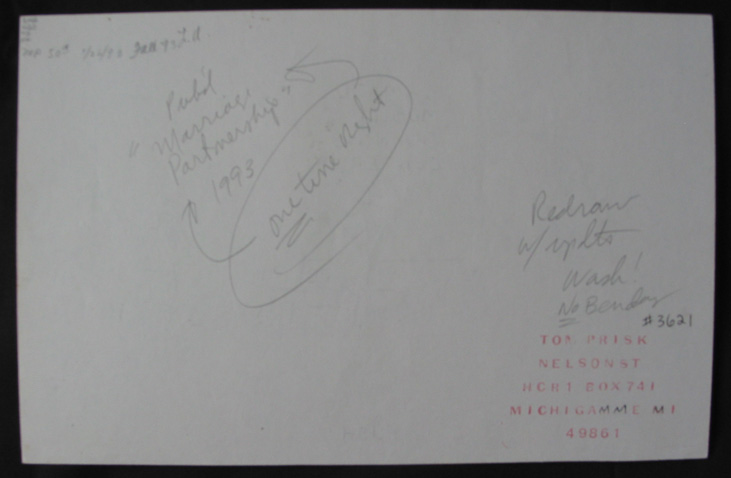 Pub'd
"Marriage
Partnership"
1993
one time right
Redraw
w/
Wash!
No Benday
#3621
TOM PRISK
NELSON ST
HCR1 BOX 741
MICHIGAMME MI
49861